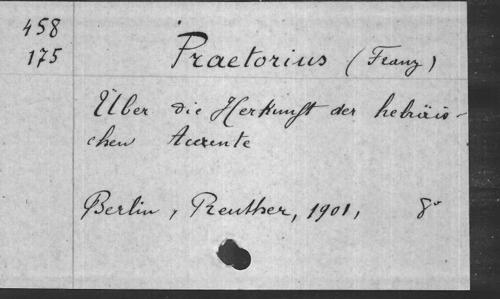 458
175
Praetorius (Franz)
Über die Herkunft der hebräis-
chen Accente
Berlin, Reuther, 1901, 8°